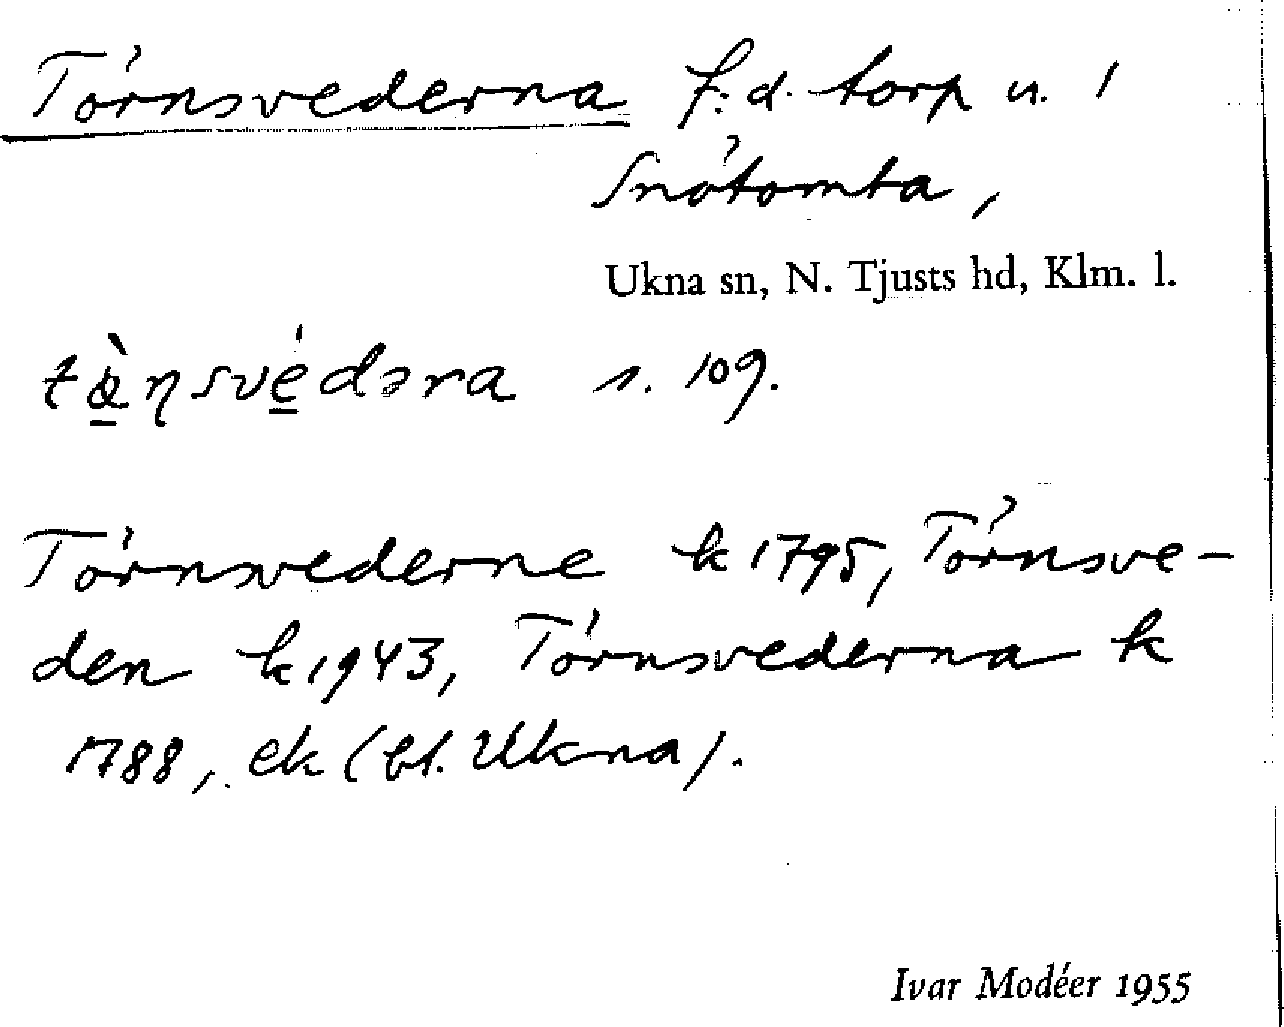 Törnsvederna f.d. torp u. 1
Snötomta,
Ukna sn, N. Tjusts hd, Klm. l.
s. 109.
Törnsvederne k 1795, Törnsve-
den k 1943, Törnsvederna k
1788, ek (bl. Ukna).
Ivar Modéer 1955